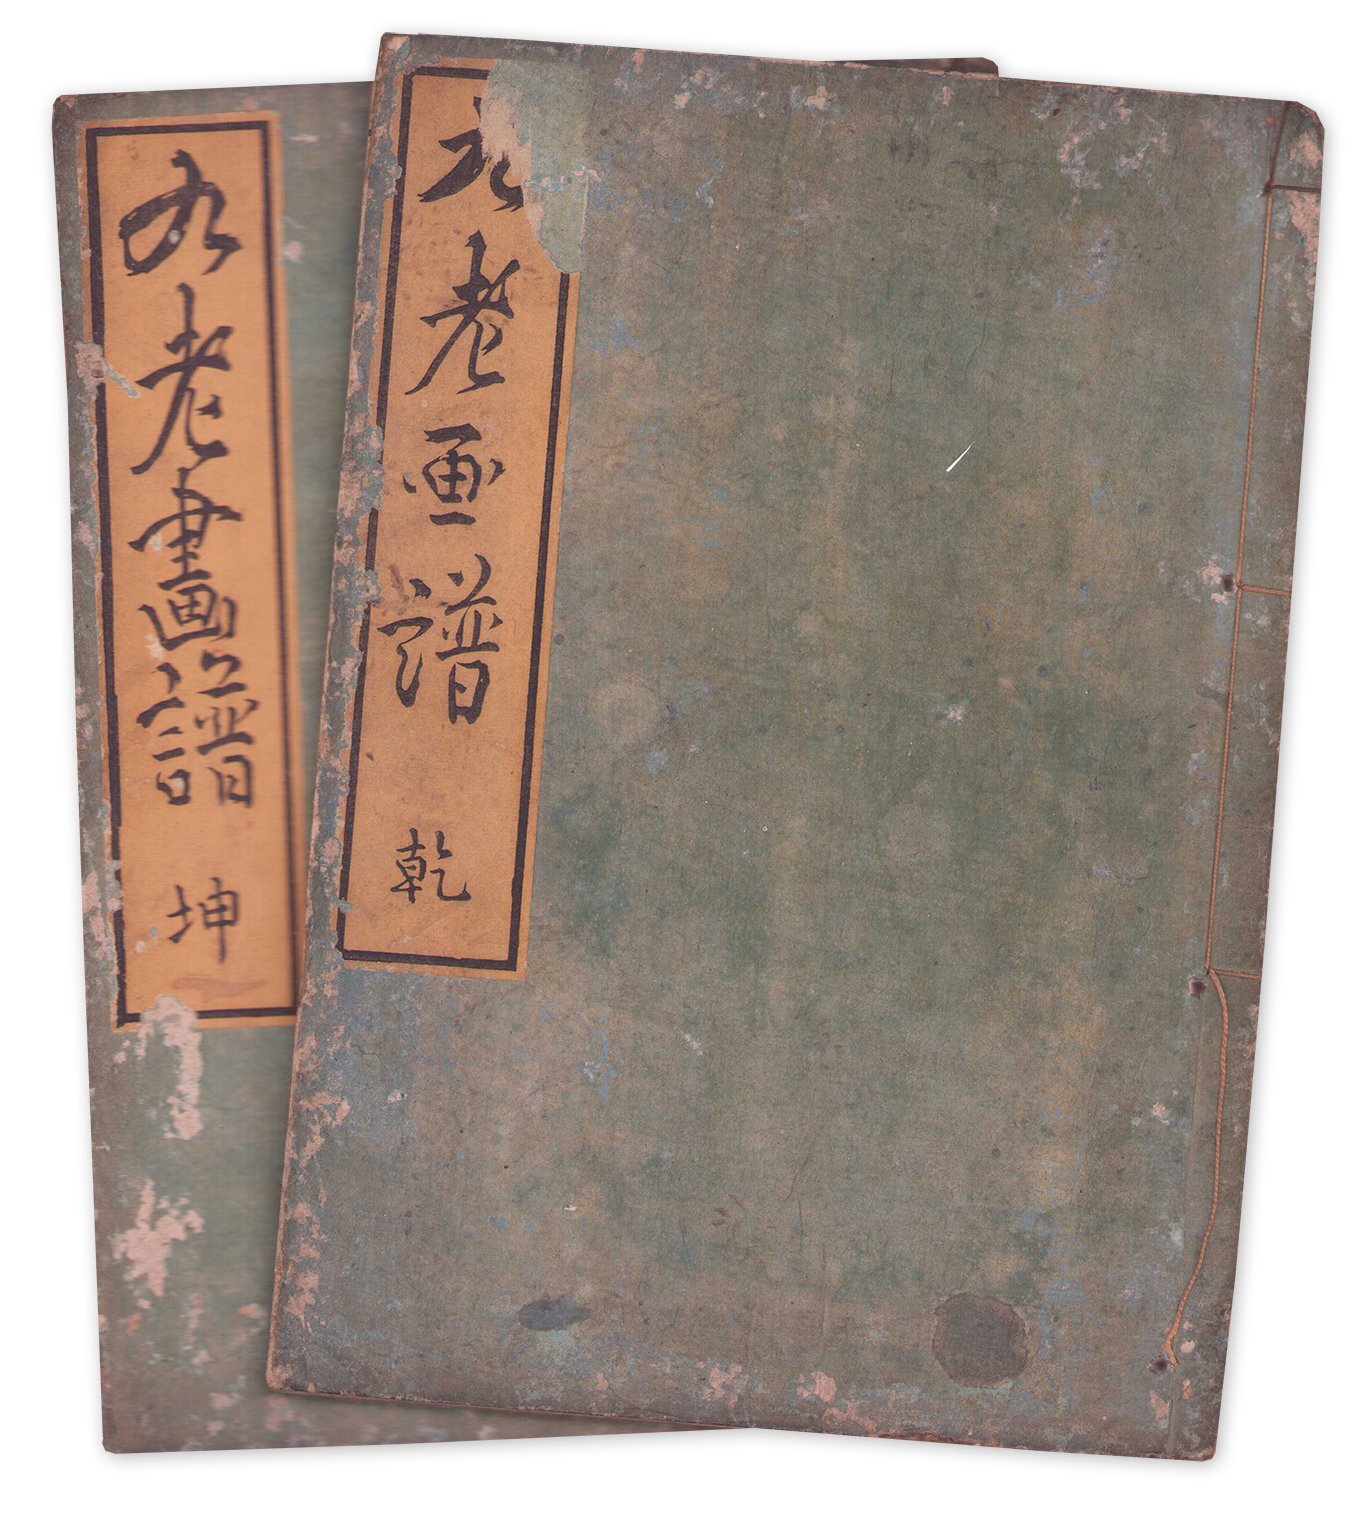 九老画譜 乾
九老畫譜 坤